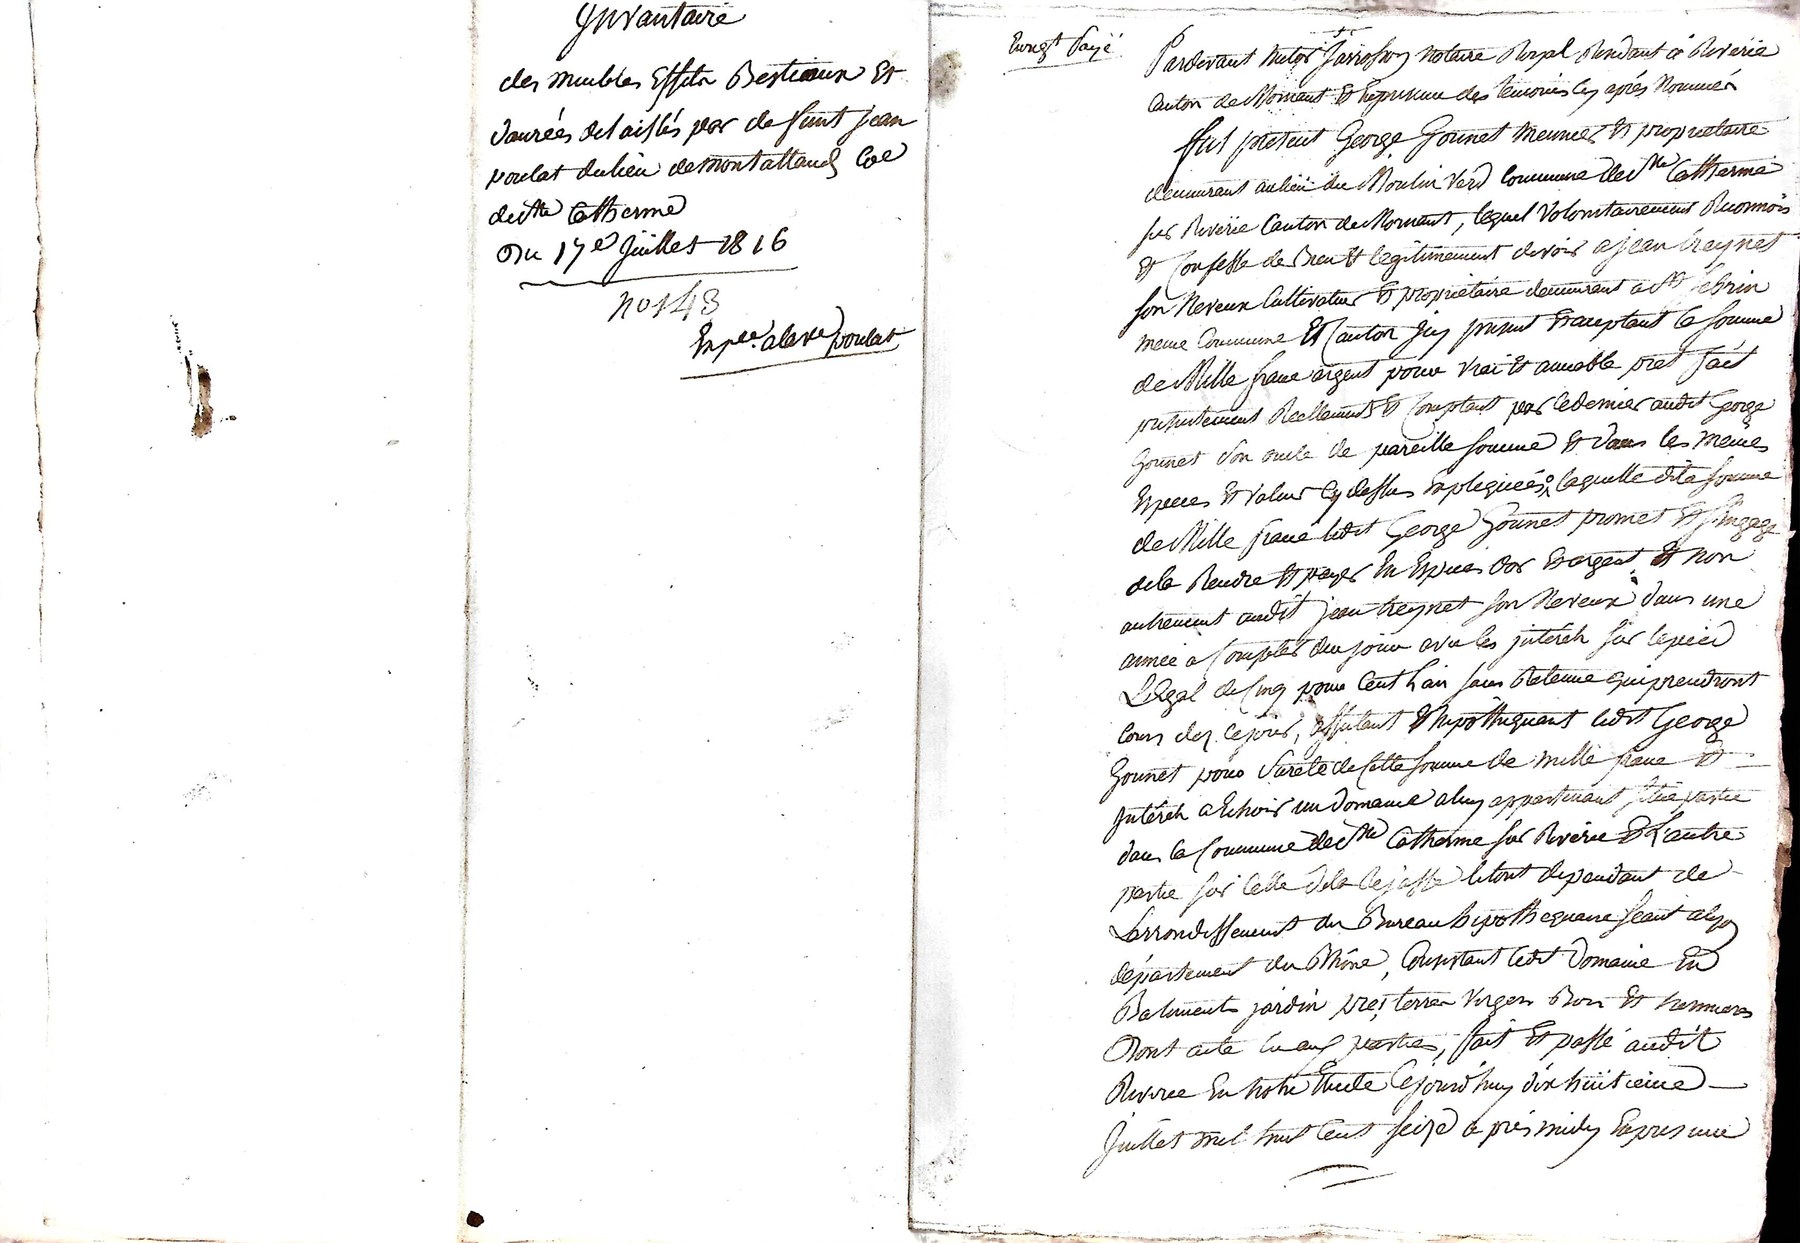 Invantaire
des meubles Effets Bestiaux Et
danrées delaissés par defunt jean
poulat dulieu demontalland Coe
deste Catherine
Du 17e Juillet 1816
no 143
Expée. alave poulat
Enregt payé
Pardevant Metor Notaire Royal Residant à Riverie
Canton deMornant Et En presence des temoins cy après Nommés
fut present George Gounet Meunier Et propriétaire
demeurant aulieu du Moulin Verd Commune deSte Catherine
sur Riverie Canton deMornant, lequel Volontairement Reconnois
Et Confesse de Bien Et legitimement devoir a jean
son Neveux Cultivateur Et propriétaire demeurant a
meme Commune Et Canton Icy present Etacceptant la somme
de Mille franc argent pour vrai Et amiable pret fait
presentement Reellement Et Comptant par cedernier audit George
Gounet son oncle de pareille somme Et dans les memes
Especes Et Valeur Cy dessus Expliquées, laquelle dite somme
de Mille franc ledit George Gounet promet Et s'engage
dela Rendre Et payer En Espèces dor Etargent Et non
autrement audit jean son Neveux dans une
année a Compter dece jour avec les jntérêts sur lepied
Légal deCinq pour Cent Lan sans Retenue quiprendront
Cours dez cejour, affectant Et hipothequant ledit George
Gounet pour Sureté deCette somme de mille franc Et
jntérêts aEchoir un Domaine aluy appartenant situé partie
dans la Commune deSte Catherine sur Riverie Et L'autre
partie sur Celle dela letout dependant de
Larrondissement du Bureau hipothequaire Séant alyon
département du Rhône, Consistant ledit Domaine En
Batiments jardin prés terres Verger Bois Et hermures
Dont acte lu aux parties, fait Et passé audit
Riverie En notre Etude Cejourd'huy dix huitieme
Juillet mil huit Cent Seize après midy En presence